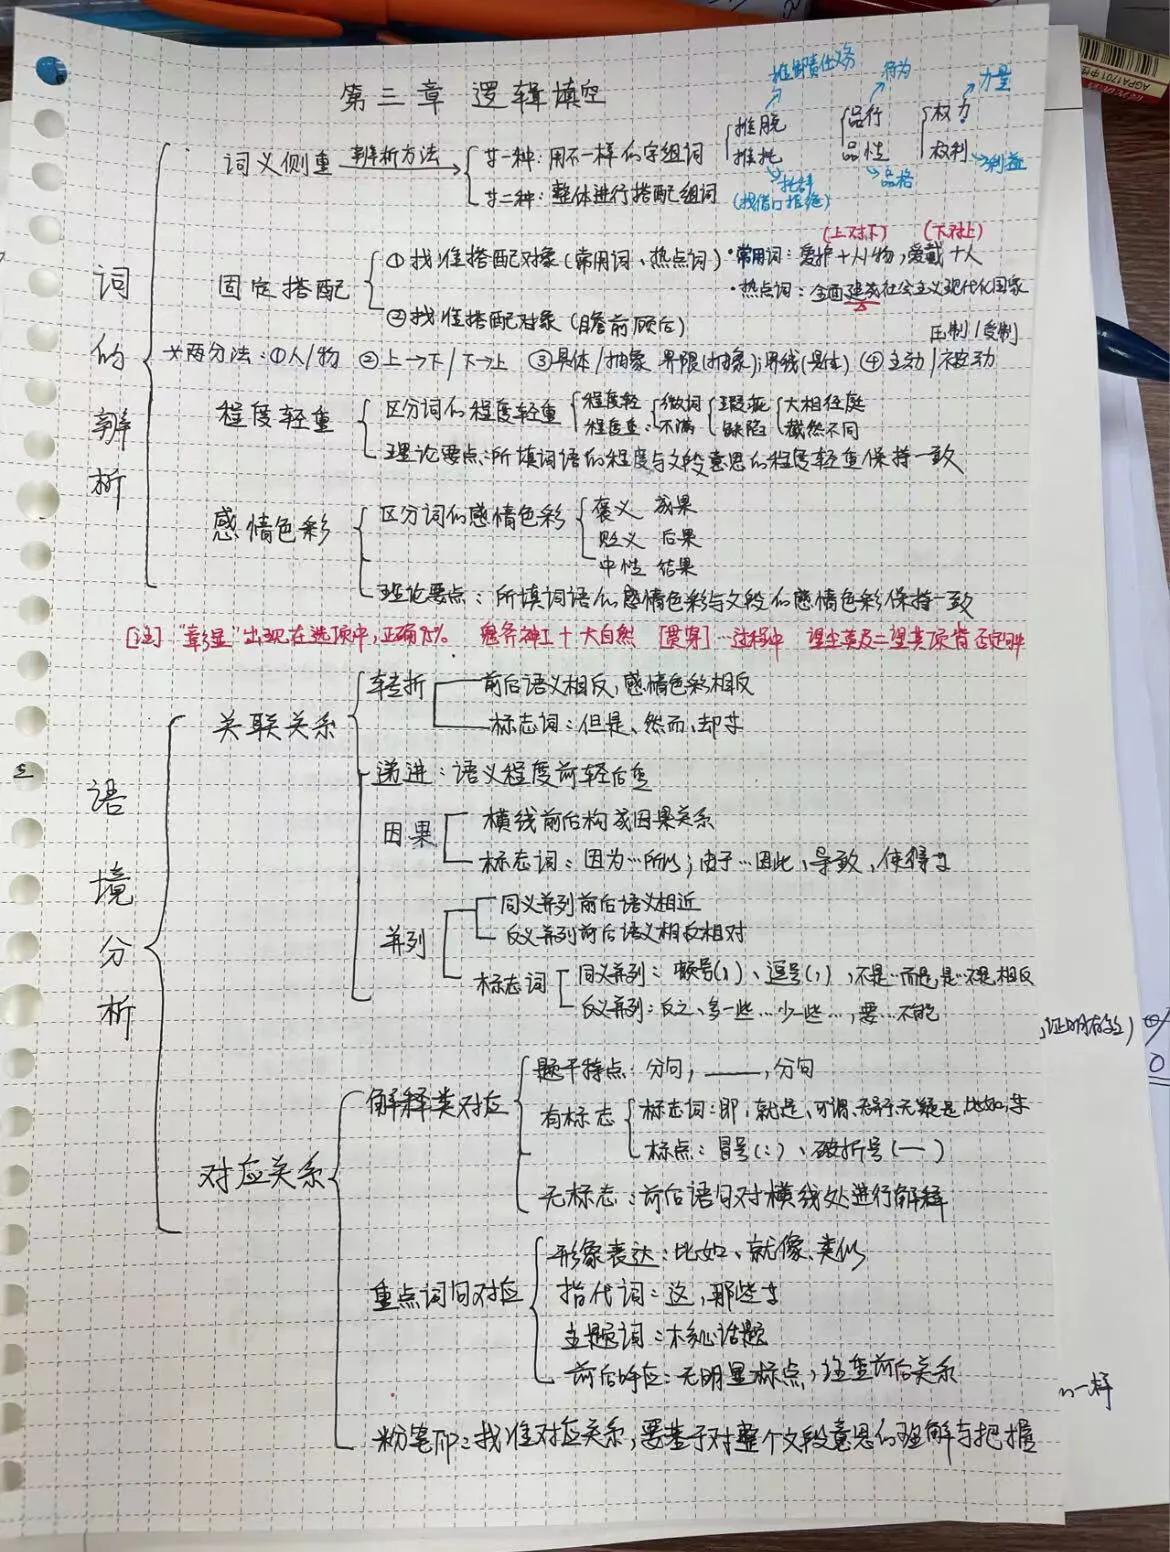 第三章 逻辑填空
推卸责任义务
行为
力量
推脱
品行
权力
推托
品性
权利
利益
品格
(找借口拒绝)
词义侧重
辨析方法
第一种：用不一样的字组词
第二种：整体进行搭配组词
词的辨析
固定搭配
①找准搭配对象(常用词、热点词)
②找准搭配对象(瞻前顾后)
(上对下)
(下对上)
·常用词：爱护+人/物，爱戴+人
·热点词：全面建成社会主义现代化国家
压制/受制
两分法：①人/物 ②上→下/下→上 ③具体/抽象 界限(抽象)；界线(具体) ④主动/被动
程度轻重
区分词的程度轻重
程度轻：微词 瑕疵 大相径庭
程度重：不满 缺陷 截然不同
理论要点：所填词语的程度与文段意思的程度轻重保持一致
感情色彩
区分词的感情色彩
褒义 成果
贬义 后果
中性 结果
理论要点：所填词语的感情色彩与文段的感情色彩保持一致
[注]“彰显”出现在选项中，正确75%. 鬼斧神工+大自然 [贯穿]…过程中 望尘莫及=望其项背 否定
语境分析
关联关系
转折
前后语义相反，感情色彩相反
标志词：但是、然而、却等
递进：语义程度前轻后重
因果
横线前后构成因果关系
标志词：因为…所以；由于…因此、导致、使得等
并列
同义并列前后语义相近
反义并列前后语义相反相对
标志词
同义并列：顿号(、)、逗号(，)，不是…而是，是…不是，相反
反义并列：反之、多一些…少一些…，要…不能
对应关系
解释类对应
题干特点：分句，——，分句
有标志
标志词：即，就是、可谓、无异于、无疑是，比如，等
标点：冒号(：)、破折号(—)
无标志：前后语句对横线处进行解释
重点词句对应
形象表达：比如、就像、类似
指代词：这，那些等
主题词：核心话题
前后呼应：无明显标点，注重前后关系
粉笔印：找准对应关系，要基于对整个文段意思的理解与把握
一样